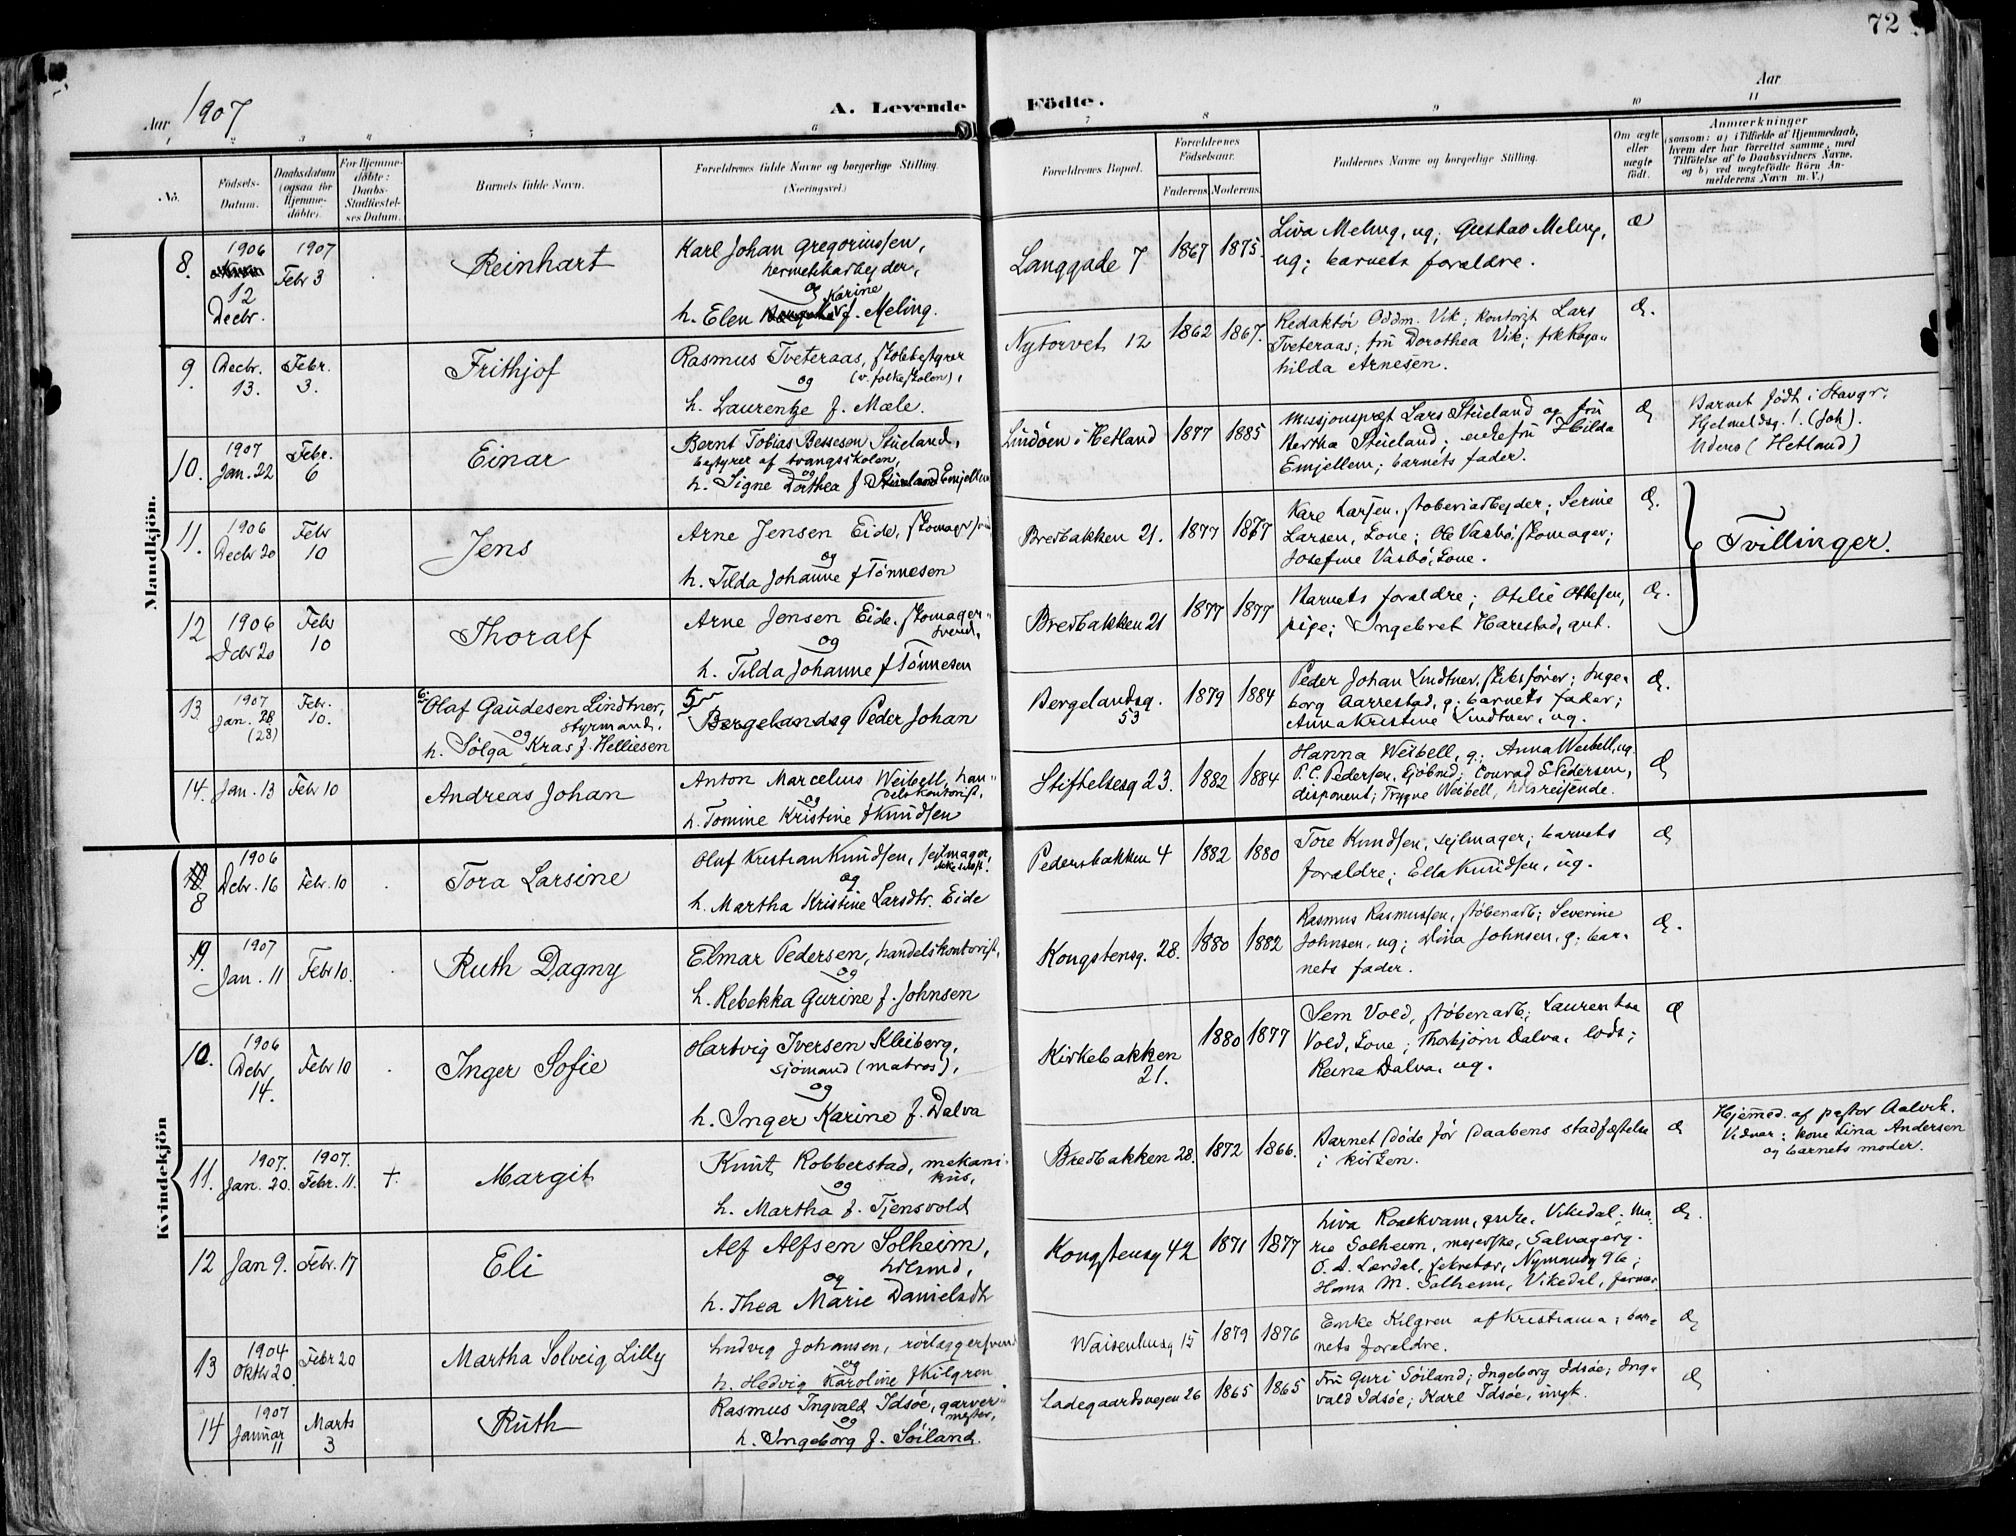 72
Aar 1907
A. Levende Födte.
Aar
1 2 3 4 5 6 7 8 9 10 11
No.
Födsels-
Datum.
Daabsdatum
(ogsaa for
Hjemme-
döbte).
For Hjemme-
döbte:
Daabs-
Stadfæstel-
ses Datum.
Barnets fulde Navn.
Forældrenes fulde Navne og borgerlige Stilling.
(Næringsvei.)
Forældrenes Bopæl.
Forældrenes
Födselsaar.
Faderens Moderens
Faddernes Navne og borgerlige Stilling.
Om ægte
eller
uægte
födt.
Anmærkninger
(saasom: a) i Tilfælde af Hjemmedaab,
hvem der har forrettet samme, med
Tilföielse af to Daabsvidners Navne,
og b) ved uægtefödte Börn An-
melderens Navn m. V.)
Mandkjön.
8.
1906
12
Decbr.
1907
Febr 3
Reinhart
Karl Johan Gregoriussen,
hermetikarbejder,
og
Karine
h. Elen f. Meling.
Langgade 7
1867 1875.
Liva Meling, ug; Gustav Meling,
ug; barnets forældre.
æ
9.
Decbr.
13.
Febr.
3.
Frithjof
Rasmus Tveteraas, skolebestyrer
og (v. folkeskolen),
h. Laurentze f. Mæle.
Nytorvet 12
1862 1867.
Redaktør Oddm. Vik; kontorist Lars
Tveteraas; fru Dorothea Vik; frk Ragn-
hilda Arnesen.
æ.
10.
1907
Jan. 22
Febr.
6
Einar
Bernt Tobias Bessesen Stueland,
bestyrer af tvangsskolen,
og
h. Signe Dorthea f Emjellem
Lindøen i Hetland
1877 1885
Missjonsprest Lars Stueland og fru
Bertha Stueland; enkefru Hilda
Emjellem; barnets fader.
æ
Barnet født i Stavgr.
Hjelmeldsg. 1. (Joh).
Udenb (Hetland)
11.
1906
Decbr 20
Febr
10
Jens
Arne Jensen Eide, skomagersvend
og
h. Tilda Johanne f Tønnesen
Bredbakken 21.
1877 1877
Kare Larsen, støberiarbejder; Serine
Larsen, kone; Ole Vasbø, skomager;
Josefine Vasbø, kone.
æ.
Tvillinger.
12
1906
Dcbr 20
Febr
10
Thoralf
Arne Jensen Eide, skomager-
svend,
og
h. Tilda Johanne f Tønnesen
Bredbakken 21
1877 1877
Barnets forældre; Otilie Ottesen,
pige; Ingebret Harestad, gut.
æ.
13
1907
Jan. 28
(28)
Febr.
10.
6.
Olaf Gaudesen Lindtner,
styrmand,
og
h. Solga Kras f. Helliesen
5
Bergelandsg Peder Johan
Bergelandsg.
53
1879 1884
Peder Johan Lindtner, skibsfører; Inge-
borg Aarrestad, g; barnets fader;
Anna Kristine Lindtner, ug.
æ.
14.
Jan. 13
Febr 10
Andreas Johan
Anton Marcelius Weibell, han-
delskontorist,
og
h. Tomine Kristine f Knudsen
Stiftelsesg 23.
1882 1884
Hanna Weibell, g.; Anna Weibell, ug.
P.C. Pedersen, kjøbmd; Conrad Pedersen,
disponent; Trygve Weibell, hdlsreisende.
æ
Kvindekjön
8
1906
Dcbr. 16
Febr. 10
Tora Larsine
Oluf Kristian Knudsen, sejlmager,
og
h. Martha Kristine Larsdtr. Eide
Pedersbakken 4
1882 1880
Tore Knudsen, sejlmager; barnets
forældre; Ella Knudsen, ug.
æ
9.
1907
Jan. 11
Febr 10.
Ruth Dagny
Elmar Pedersen, handelskontorist,
og
h. Rebekka Gurine f. Johnsen
Kongstensg. 28.
1880 1882
Rasmus Rasmussen, støberiarb; Severine
Johnsen, ug; Dina Johnsen, g; bar-
nets fader.
æ.
10.
1906
Dcbr.
14.
Febr 10
Inger Sofie
Hartvig Iversen Kleiberg,
sjømand (matros),
og
h. Inger Karine f. Dalva
Kirkebakken
21.
1880 1877
Sem Vold, støberiarb; Laurentsa
Vold, kone; Thorbjørn Dalva, lods;
Reina Dalva, ug.
æ
11.
1907.
Jan. 20.
1907.
Febr. 11.
+
Margit
Knut Robberstad, mekani-
kus,
og
h. Martha f. Tjensvold
Bredbakken 28.
1872 1866.
Barnet døde før daabens stadfæstelse
i kirken.
æ
Hjemmed. af pastor Aalvik.
Vidner: kone Lina Andersen
og barnets moder.
12
Jan 9.
Febr. 17
Eli
Alf Alfsen Solheim,
hdlsmd,
og
h. Thea Marie Danielsdtr
Kongstensg 42
1871 1877
Liva Roalkvam, enke, Vikedal; Ma-
rie Solheim, mejerske, Salvagerg.
O. A. Lærdal, sekretær, Nymansg 96;
Hans M. Solheim, Vikedal, farver
æ.
13
1904
Oktbr 20.
Febr 20
Martha Solveig Lilly
Ludvig Johansen, rørlæggersvend
og
h. Hedvig Karoline f Kilgren
Waisenhusg 15
1879 1876
Enke Kilgren af Kristiania; bar-
nets forældre.
æ
14
1907
Januar
11
Marts
3
Ruth
Rasmus Ingvald Idsøe, garver-
mester,
og
h. Ingeborg f. Soiland.
Ladegaardsvejen 26
1865 1865
Fru Guri Söiland; Ingeborg Idsøe; Ing-
vald Idsøe; Karl Idsøe, ungk.
æ